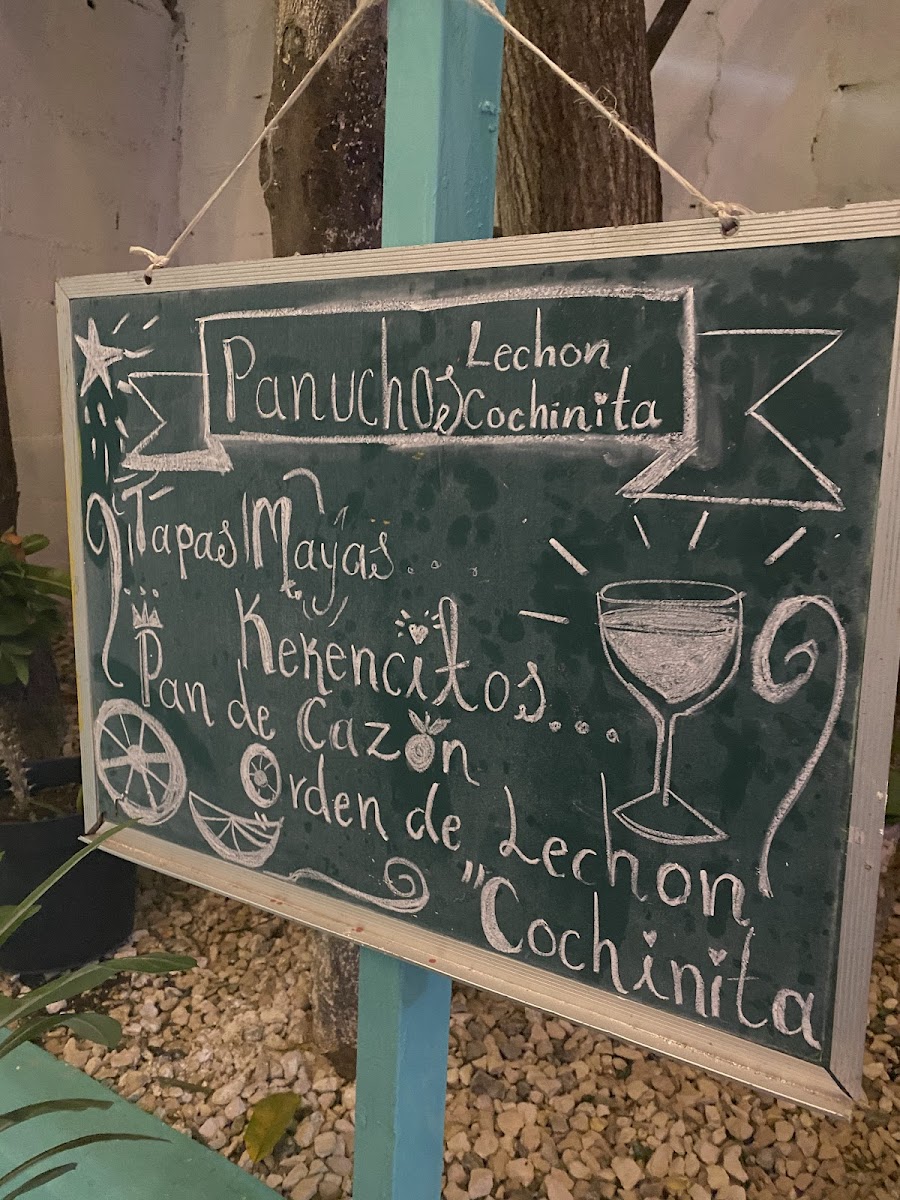 Panuchos Lechon
Cochinita
Tapas Mayas...
Kekencitos...
Pan de Cazón
Orden de Lechon
" Cochinita